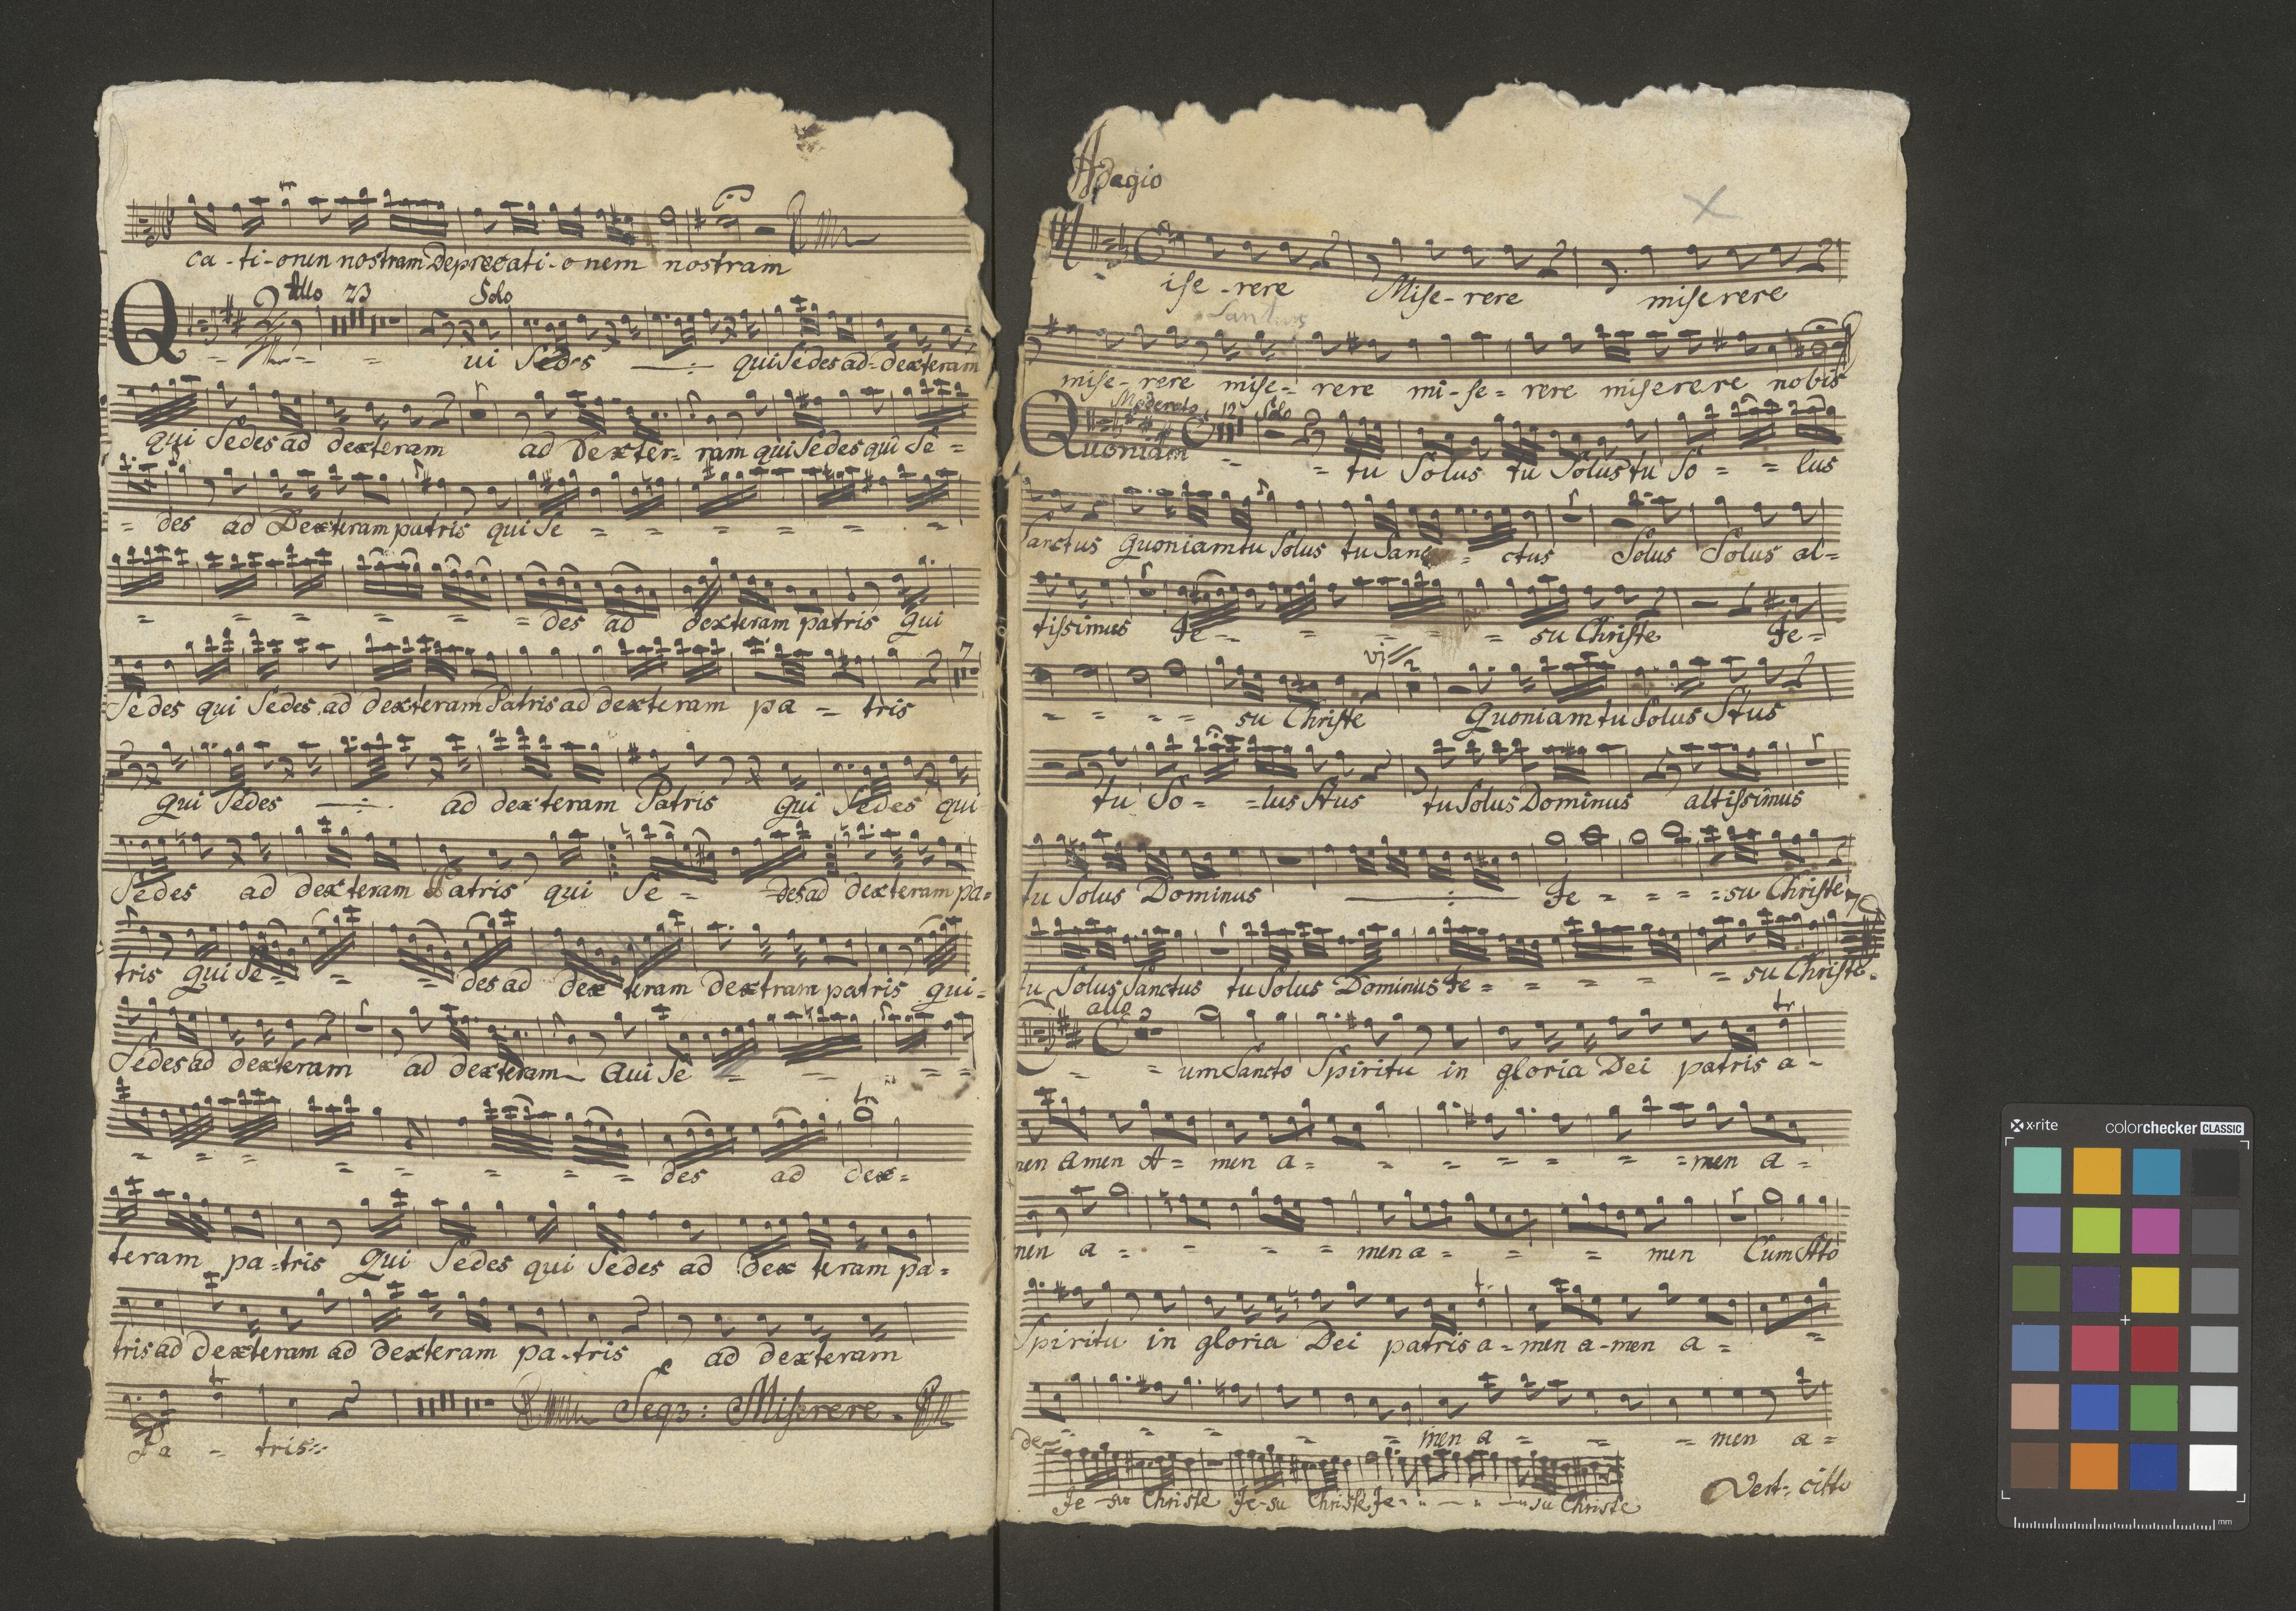 ca - ti - onen nostram Deprecati - onem nostram
Allo 23 Solo
Q ui Sedes qui Sedes ad dexteram
qui Sedes ad dexteram ad Dexter- ram qui Sedes qui Se =
= des ad Dexteram patris qui Se = = = = = =
= = = = = = des ad dexteram patris qui
7
Sedes qui Sedes ad dexteram Patris ad dexteram pa - tris
qui Sedes ad dexteram Patris qui Sedes qui
Sedes ad dexteram Patris qui Se = des ad dexteram pa=
tris qui Se = = = des ad dex teram dextram patris qui =
Sedes ad dexteram ad dexteram Qui Se = = = =
tr
= = = = = = = = des ad dex =
teram pa=tris Qui Sedes qui Sedes ad dex teram pa=
tris ad dexteram ad dexteram pa-tris ad dexteram
Seqr: Miserere.
Pa - tris
Adagio
M iſe - rere Miſe - rere miſerere
Sanctus
miſe- rere miſe = rere mi - ſe = rere miſerere nobis
Moderato 12 Solo
Quoniam = = tu Solus tu Solus tu So = = lus
Sanctus Quoniam tu Solus tu Sanc = ctus Solus Solus al=
tiſsimus Je = = = = = su Chriſte Je =
= = = = su Chriſte Quoniam tu Solus Stus
tu So = = lus Stus tu Solus Dominus altiſsimus
tu Solus Dominus Je = = = = su Chriſte
tu Solus Sanctus tu Solus Dominus Je = = = = = su Chriſte.
allo 3 tr
C = = um Sancto Spiritu in gloria Dei patris a -
men amen A = men a = = = = = = = men a =
men a = = = = men a = = = men Cum Sto
Spiritu in gloria Dei patris a = men a - men a = =
= = = = men a = = = men a =
de
Je - su Christe Je - su Christe Je - - - su Christe
Vert: citto